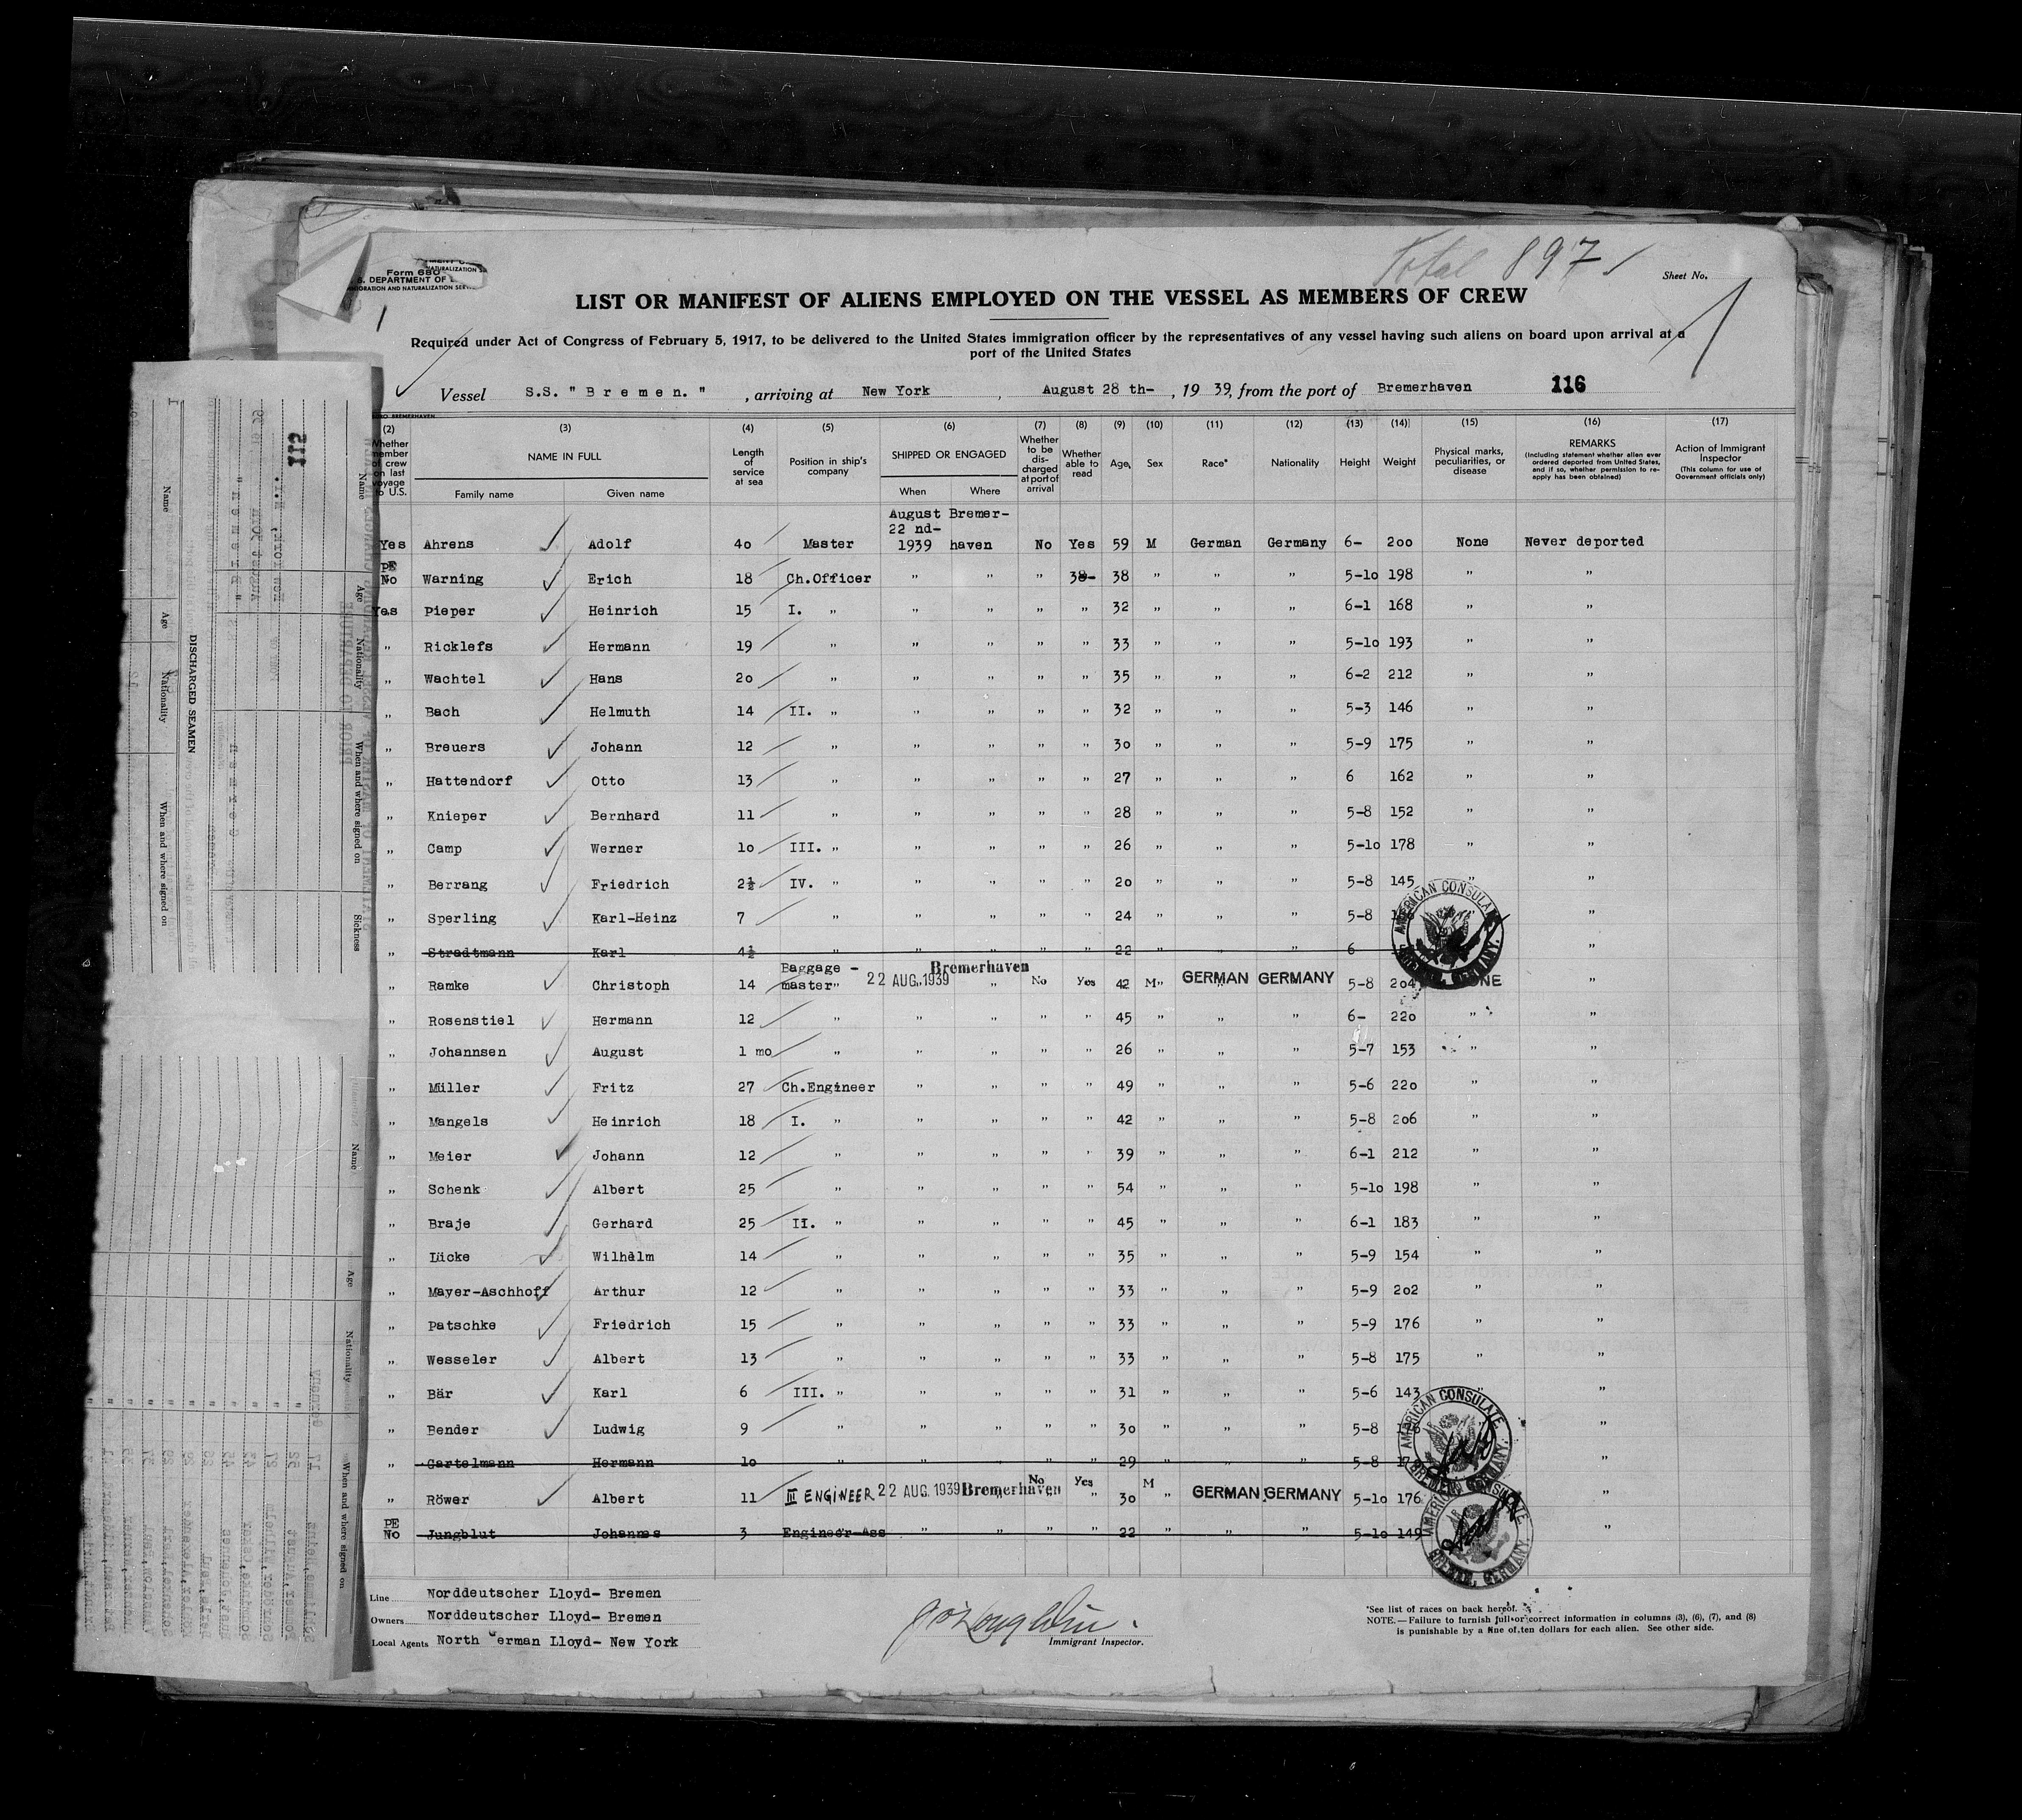 Total 897
Form 680
S. DEPARTMENT OF
IMMIGRATION AND NATURALIZATION
Sheet No.
LIST OR MANIFEST OF ALIENS EMPLOYED ON THE VESSEL AS MEMBERS OF CREW
Required under Act of Congress of February 5, 1917, to be delivered to the United States immigration officer by the representatives of any vessel having such aliens on board upon arrival at a
port of the United States
Vessel S.S. " B r e m e n. " , arriving at New York , August 28 th- , 19 39, from the port of Bremerhaven 116
(2) (3) (4) (5) (6) (7) (8) (9) (10) (11) (12) (13) (14) (15) (16) (17)
Whether member of crew on last voyage to U.S. NAME IN FULL Family name Given name Length of service at sea Position in ship's company SHIPPED OR ENGAGED When Where Whether to be discharged at port of arrival Whether able to read Age Sex Race* Nationality Height Weight Physical marks, peculiarities, or disease REMARKS (Including statement whether alien ever ordered deported from United States, and if so, whether permission to re-apply has been obtained) Action of Immigrant Inspector (This column for use of Government officials only)
August Bremer-
22 nd-
Yes Ahrens Adolf 40 Master 1939 haven No Yes 59 M German Germany 6- 200 None Never deported
PE
No Warning Erich 18 Ch.Officer " " " 38- 38 " " " 5-10 198 " "
Yes Pieper Heinrich 15 I. " " " " " 32 " " " 6-1 168 " "
" Ricklefs Hermann 19 " " " " " 33 " " " 5-10 193 " "
" Wachtel Hans 20 " " " " " 35 " " " 6-2 212 " "
" Bach Helmuth 14 II. " " " " " 32 " " " 5-3 146 " "
" Breuers Johann 12 " " " " " 30 " " " 5-9 175 " "
" Hattendorf Otto 13 " " " " " 27 " " " 6 162 " "
" Knieper Bernhard 11 " " " " " 28 " " " 5-8 152 " "
" Camp Werner 10 III. " " " " " 26 " " " 5-10 178 " "
" Berrang Friedrich 2½ IV. " " " " " 20 " " " 5-8 145 " "
" Sperling Karl-Heinz 7 " " " " " 24 " " " 5-8 "
" Stradtmann Karl 4½ " " " " " 22 " " " 6 "
Baggage - Bremerhaven
" Ramke Christoph 14 master" 22 AUG. 1939 " No Yes 42 M" GERMAN GERMANY 5-8 204 NONE "
" Rosenstiel Hermann 12 " " " " " 45 " " " 6- 220 " "
" Johannsen August 1 mo " " " " " 26 " " " 5-7 153 " "
" Müller Fritz 27 Ch.Engineer " " " " 49 " " " 5-6 220 " "
" Mangels Heinrich 18 I. " " " " " 42 " " " 5-8 206 " "
" Meier Johann 12 " " " " " 39 " " " 6-1 212 " "
" Schenk Albert 25 " " " " " 54 " " " 5-10 198 " "
" Braje Gerhard 25 II. " " " " " 45 " " " 6-1 183 " "
" Lücke Wilhelm 14 " " " " " 35 " " " 5-9 154 " "
" Mayer-Aschhoff Arthur 12 " " " " " 33 " " " 5-9 202 " "
" Patschke Friedrich 15 " " " " " 33 " " " 5-9 176 " "
" Wesseler Albert 13 " " " " " 33 " " " 5-8 175 " "
" Bär Karl 6 III. " " " " " 31 " " " 5-6 143 " "
" Bender Ludwig 9 " " " " " 30 " " " 5-8 "
" Gartelmann Hermann 10 " " " " " 29 " " " 5-8 "
" Röwer Albert 11 III ENGINEER 22 AUG. 1939 Bremerhaven No Yes 30 M " GERMAN GERMANY 5-10 176 "
PE
No Jungblut Johannes 3 Engineer-Ass " " " " 22 " " " 5-10 149 "
AMERICAN CONSULATE
BREMEN, GERMANY.
AMERICAN CONSULATE
BREMEN, GERMANY.
AMERICAN CONSULATE
BREMEN, GERMANY.
Line Norddeutscher Lloyd- Bremen
Owners Norddeutscher Lloyd- Bremen
Local Agents North German Lloyd- New York
Immigrant Inspector.
*See list of races on back hereof.
NOTE.—Failure to furnish full or correct information in columns (3), (6), (7), and (8)
is punishable by a fine of ten dollars for each alien. See other side.
112
DISCHARGED SEAMEN
Name Age Nationality When and where signed on
Name Age Nationality When and where signed on Sickness
Name Age Nationality When and where signed on